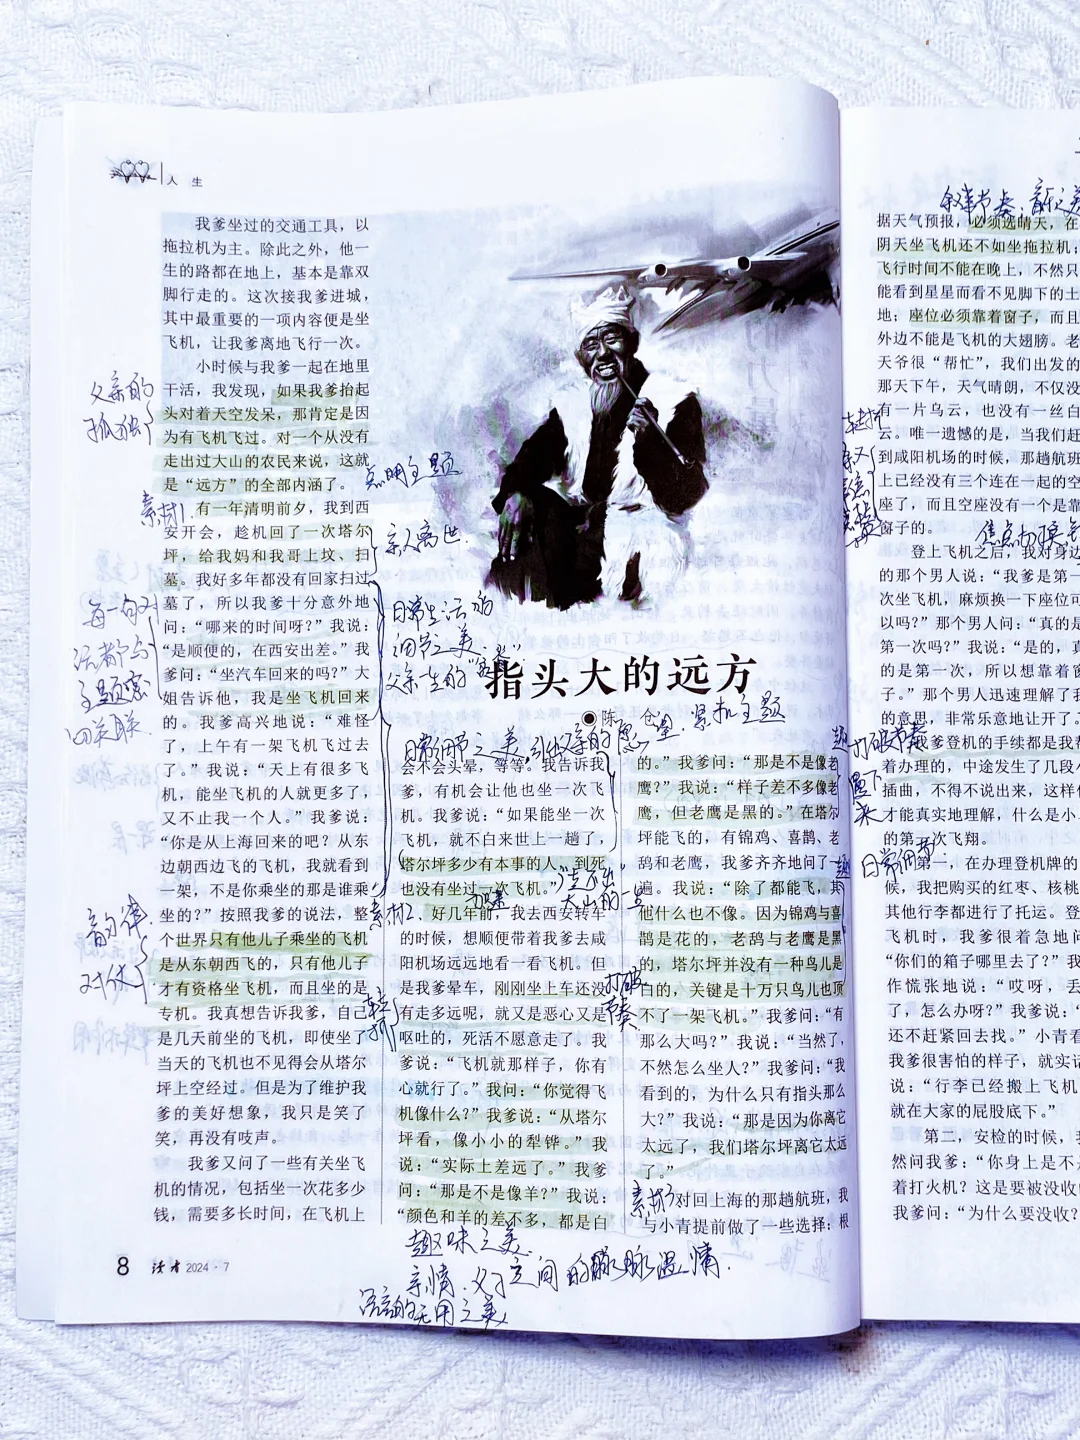 人 生
我爹坐过的交通工具，以
拖拉机为主。除此之外，他一
生的路都在地上，基本是靠双
脚行走的。这次接我爹进城，
其中最重要的一项内容便是坐
飞机，让我爹离地飞行一次。
小时候与我爹一起在地里
干活，我发现，如果我爹抬起
头对着天空发呆，那肯定是因
为有飞机飞过。对一个从没有
走出过大山的农民来说，这就
是“远方”的全部内涵了。
有一年清明前夕，我到西
安开会，趁机回了一次塔尔
坪，给我妈和我哥上坟、扫
墓。我好多年都没有回家扫过
墓了，所以我爹十分意外地
问：“哪来的时间呀？”我说：
“是顺便的，在西安出差。”我
爹问：“坐汽车回来的吗？”大
姐告诉他，我是坐飞机回来
的。我爹高兴地说：“难怪
了，上午有一架飞机飞过去
了。”我说：“天上有很多飞
机，能坐飞机的人就更多了，
又不止我一个人。”我爹说：
“你是从上海回来的吧？从东
边朝西边飞的飞机，我就看到
一架，不是你乘坐的那是谁乘
坐的？”按照我爹的说法，整
个世界只有他儿子乘坐的飞机
是从东朝西飞的，只有他儿子
才有资格坐飞机，而且坐的是
专机。我真想告诉我爹，自己
是几天前坐的飞机，即使坐了
当天的飞机也不见得会从塔尔
坪上空经过。但是为了维护我
爹的美好想象，我只是笑了
笑，再没有吱声。
我爹又问了一些有关坐飞
机的情况，包括坐一次花多少
钱，需要多长时间，在飞机上
父亲的
孤独
素材1
每一句对
话都与
主题密
切关联
韵律
对仗
点明主题
亲人离世
日常生活的
细节之美
父亲一生的
指头大的远方
陈 仓
紧扣主题
日常细节之美，引出父亲的愿望
会不会头晕，等等。我告诉我
爹，有机会让他也坐一次飞
机。我爹说：“如果能坐一次
飞机，就不白来世上一趟了，
塔尔坪多少有本事的人，到死
也没有坐过一次飞机。”
好几年前，我去西安转车
的时候，想顺便带着我爹去咸
阳机场远远地看一看飞机。但
是我爹晕车，刚刚坐上车还没
有走多远呢，就又是恶心又是
呕吐的，死活不愿意走了。我
爹说：“飞机就那样子，你有
心就行了。”我问：“你觉得飞
机像什么？”我爹说：“从塔尔
坪看，像小小的犁铧。”我
说：“实际上差远了。”我爹
问：“那是不是像羊？”我说：
“颜色和羊的差不多，都是白
素材2
转折
打破
节奏
的。”我爹问：“那是不是像老
鹰？”我说：“样子差不多像老
鹰，但老鹰是黑的。”在塔尔
坪能飞的，有锦鸡、喜鹊、老
鸹和老鹰，我爹齐齐地问了一
遍。我说：“除了都能飞，其
他什么也不像。因为锦鸡与喜
鹊是花的，老鸹与老鹰是黑
的，塔尔坪并没有一种鸟儿是
白的，关键是十万只鸟儿也顶
不了一架飞机。”我爹问：“有
那么大吗？”我说：“当然了，
不然怎么坐人？”我爹问：“我
看到的，为什么只有指头那么
大？”我说：“那是因为你离它
太远了，我们塔尔坪离它太远
了。”
对回上海的那趟航班，我
与小青提前做了一些选择：根
素材3
趣味之美
亲情、父子之间的脉脉温情
语言的无用之美
8 读者 2024·7
据天气预报，必须选晴天，在
阴天坐飞机还不如坐拖拉机；
飞行时间不能在晚上，不然只
能看到星星而看不见脚下的土
地；座位必须靠着窗子，而且
外边不能是飞机的大翅膀。老
天爷很“帮忙”，我们出发的
那天下午，天气晴朗，不仅没
有一片乌云，也没有一丝白
云。唯一遗憾的是，当我们赶
到咸阳机场的时候，那趟航班
上已经没有三个连在一起的空
座了，而且空座没有一个是靠
窗子的。
登上飞机之后，我对身边
的那个男人说：“我爹是第一
次坐飞机，麻烦换一下座位可
以吗？”那个男人问：“真的是
第一次吗？”我说：“是的，真
的是第一次，所以想靠着窗
子。”那个男人迅速理解了我
的意思，非常乐意地让开了。
我爹登机的手续都是我帮
着办理的，中途发生了几段小
插曲，不得不说出来，这样你
才能真实地理解，什么是小
的第一次飞翔。
第一，在办理登机牌的
候，我把购买的红枣、核桃
其他行李都进行了托运。登
飞机时，我爹很着急地问
“你们的箱子哪里去了？”我
作慌张地说：“哎呀，丢
了，怎么办呀？”我爹说：“
还不赶紧回去找。”小青看
我爹很害怕的样子，就实话
说：“行李已经搬上飞机
就在大家的屁股底下。”
第二，安检的时候，我
然问我爹：“你身上是不是
着打火机？这是要被没收
我爹问：“为什么要没收？
打破节奏
日常细节